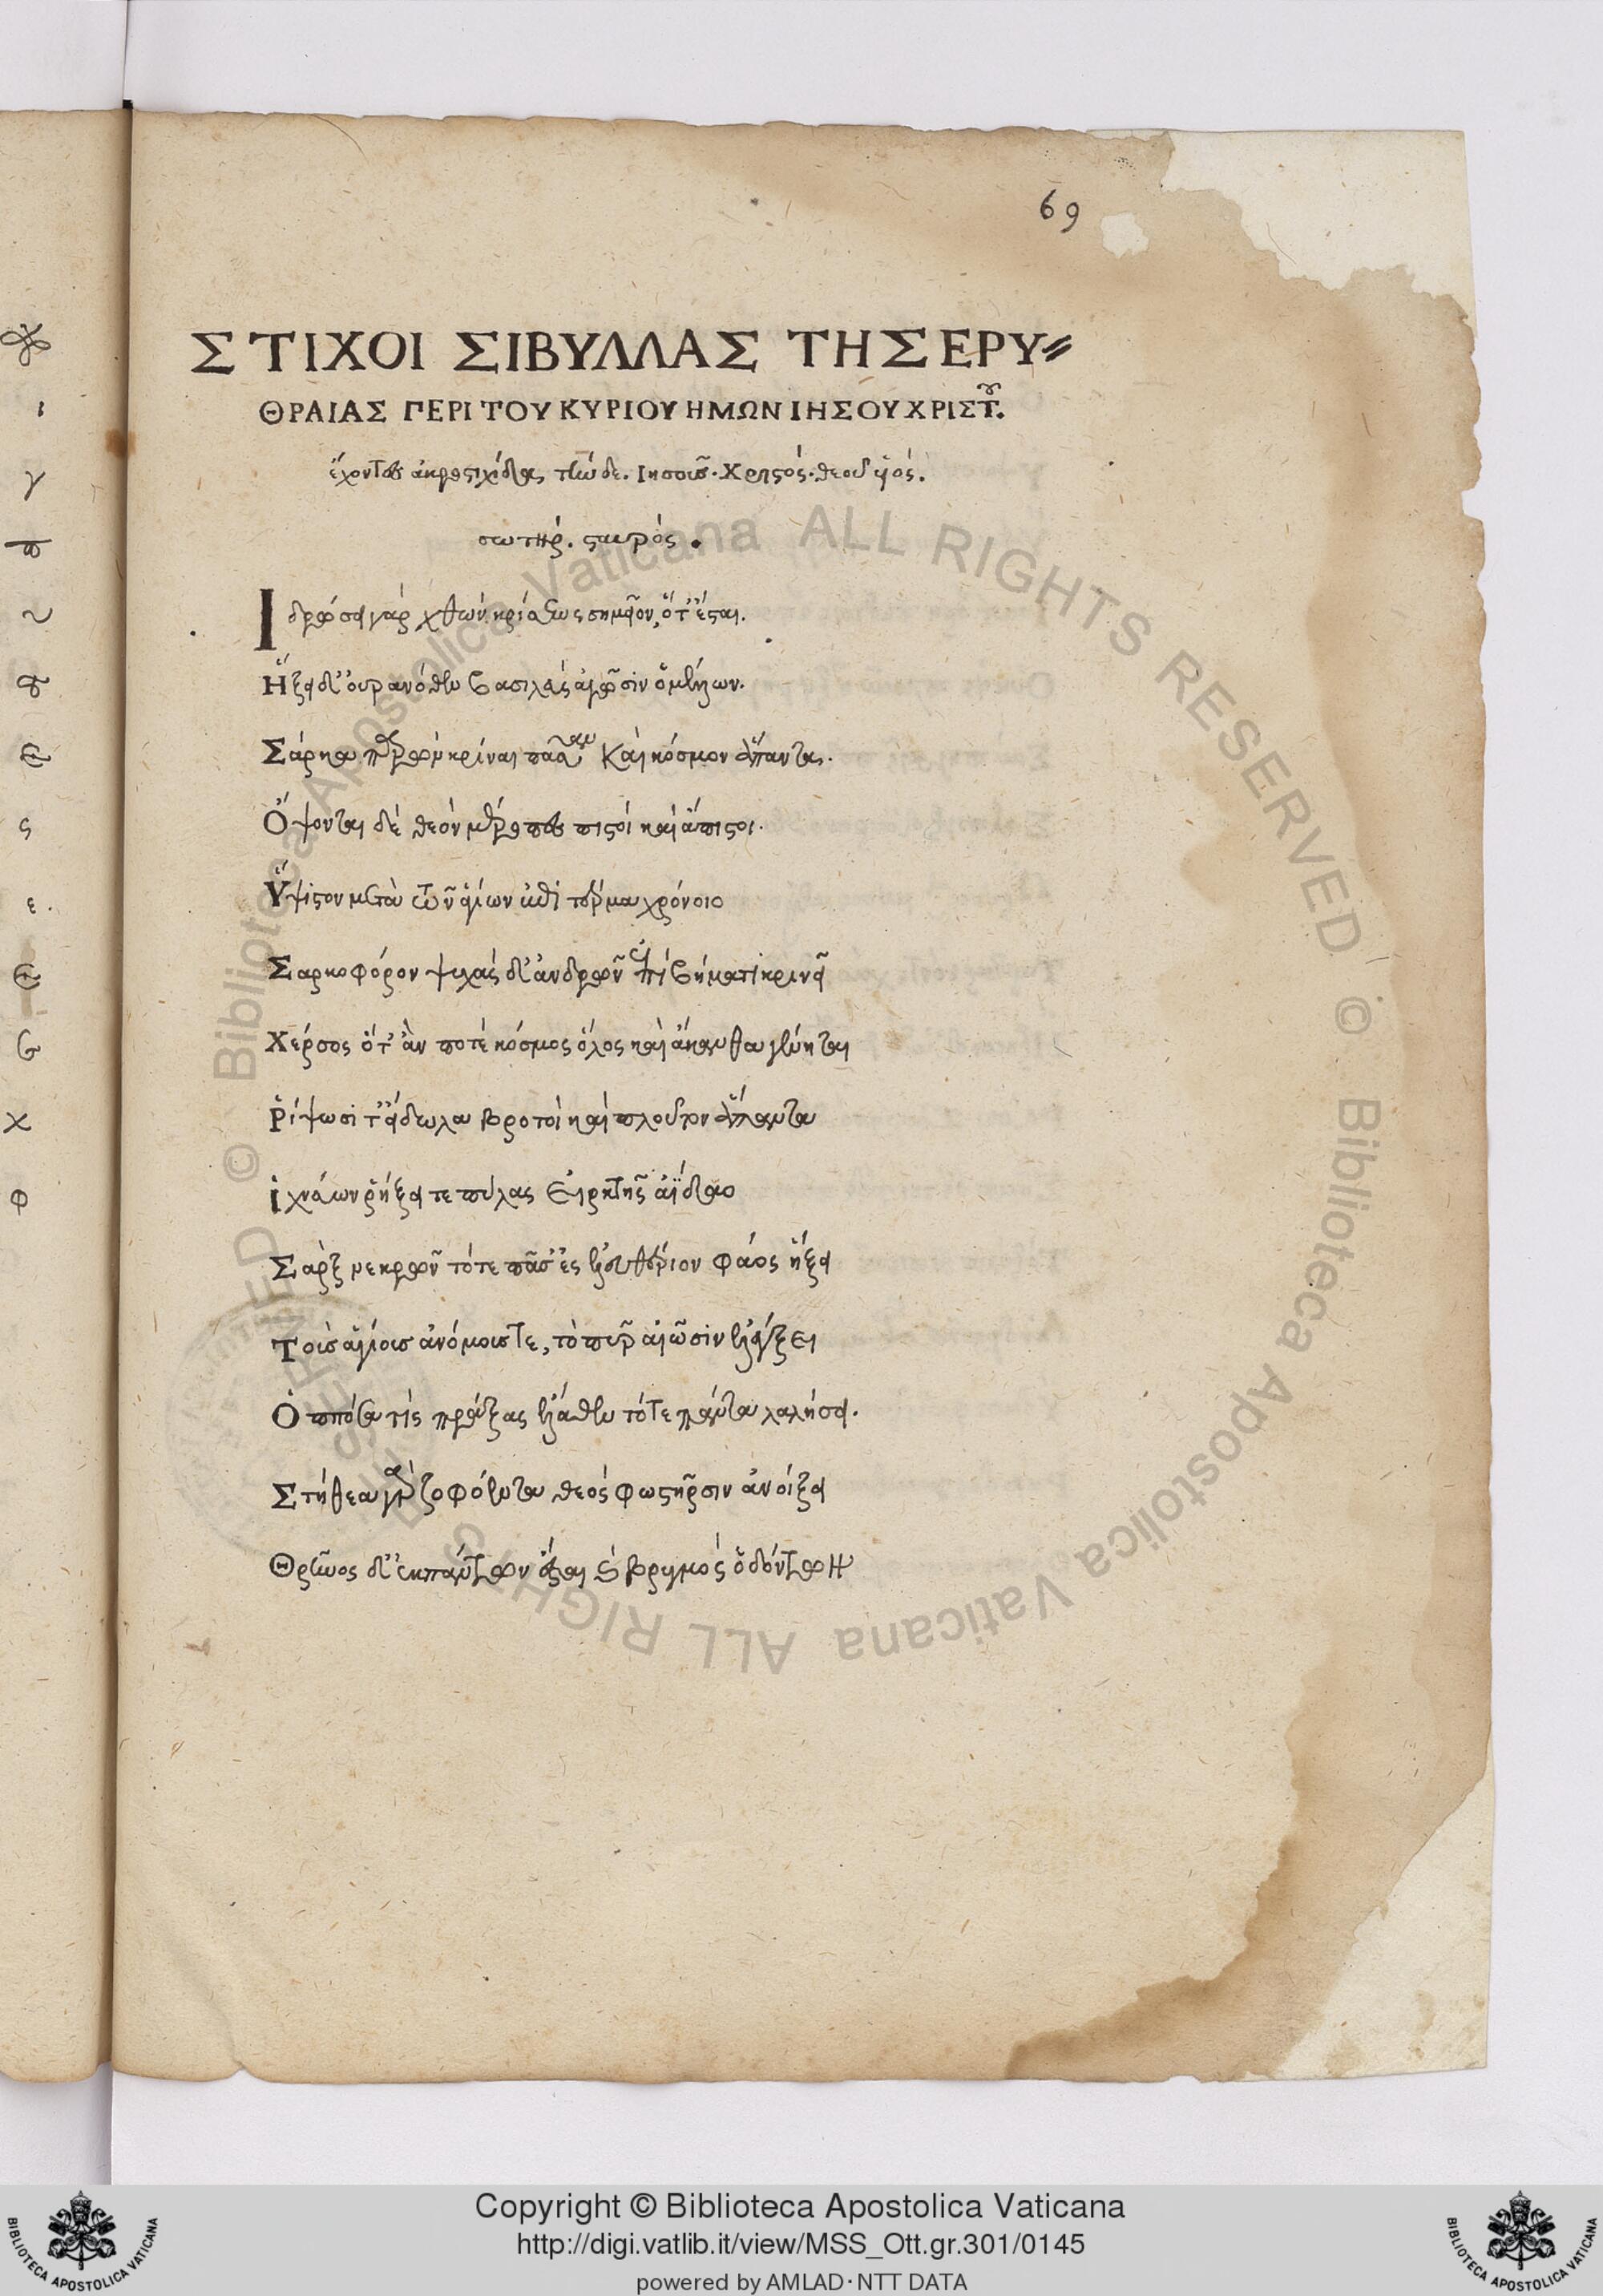 69
ΣΤΙΧΟΙ ΣΙΒΥΛΛΑΣ ΤΗΣ ΕΡΥ⸗
ΘΡΑΙΑΣ ΠΕΡΙ ΤΟΥ ΚΥΡΙΟΥ ΗΜΩΝ ΙΗΣΟΥ ΧΡΙΣΤȢ͂.
ἔχοντες ἀκροστιχίδα, τήνδε. Ιησοῦς. Χρηστός. θεοῦ ὑιός.
σωτήρ. σταυρός.
Ιδρώσει γάρ χθών, κρίσεως σημεῖον, ὅτ' ἔσται.
Ἥξει δ' ὀυρανόθεν βασιλεύς ἀιῶσιν ὁ μέλλων.
Σάρκα παρών κρίναι πᾶσαν καὶ κόσμον ἅπαντα.
Ὄψονται δέ θεόν μέροπες πιστοί καί ἄπιστοι.
Ὕψιστον μετὰ τῶν ἁγίων ἐπί τέρμα χρόνοιο
Σαρκοφόρον ψυχάς δ' ἀνδρῶν ἐπί βήματι κρινεῖ
Χέρσος ὅτ' ἂν ποτέ κόσμος ὅλος καί ἄκανθα γένηται
Ῥίψωσί τ' εἴδωλα βροτοί καί πλοῦτον ἅπαντα
ἰχνεύων ῥήξει τε πύλας εἱρκτῆς ἀΐδαο
Σαρὰξ νεκρῶν τότε πᾶσ' ἐς ἐλευθέριον φάος ἥξει
Τοῖς ἁγίοις ἀνόμοις τε, τὸ πῦρ ἀιῶσιν ἐλέγξει
Ὁππόσα τίς πράξας ἔλαθεν τότε πάντα λαλήσει.
Στήθεα γάρ ζοφόεντα θεός φωστῆρσιν ἀνοίξει
Θρῆνος δ' ἐκ πάντων ἔσται καὶ βρυγμός ὀδόντων
ι
γ
ς
ε.
χ
φ
© Biblioteca Apostolica Vaticana ALL RIGHTS RESERVED © Biblioteca Apostolica Vaticana ALL RIGHTS RESERVED
Copyright © Biblioteca Apostolica Vaticana
http://digi.vatlib.it/view/MSS_Ott.gr.301/0145
powered by AMLAD · NTT DATA
BIBLIOTECA APOSTOLICA VATICANA
BIBLIOTECA APOSTOLICA VATICANA